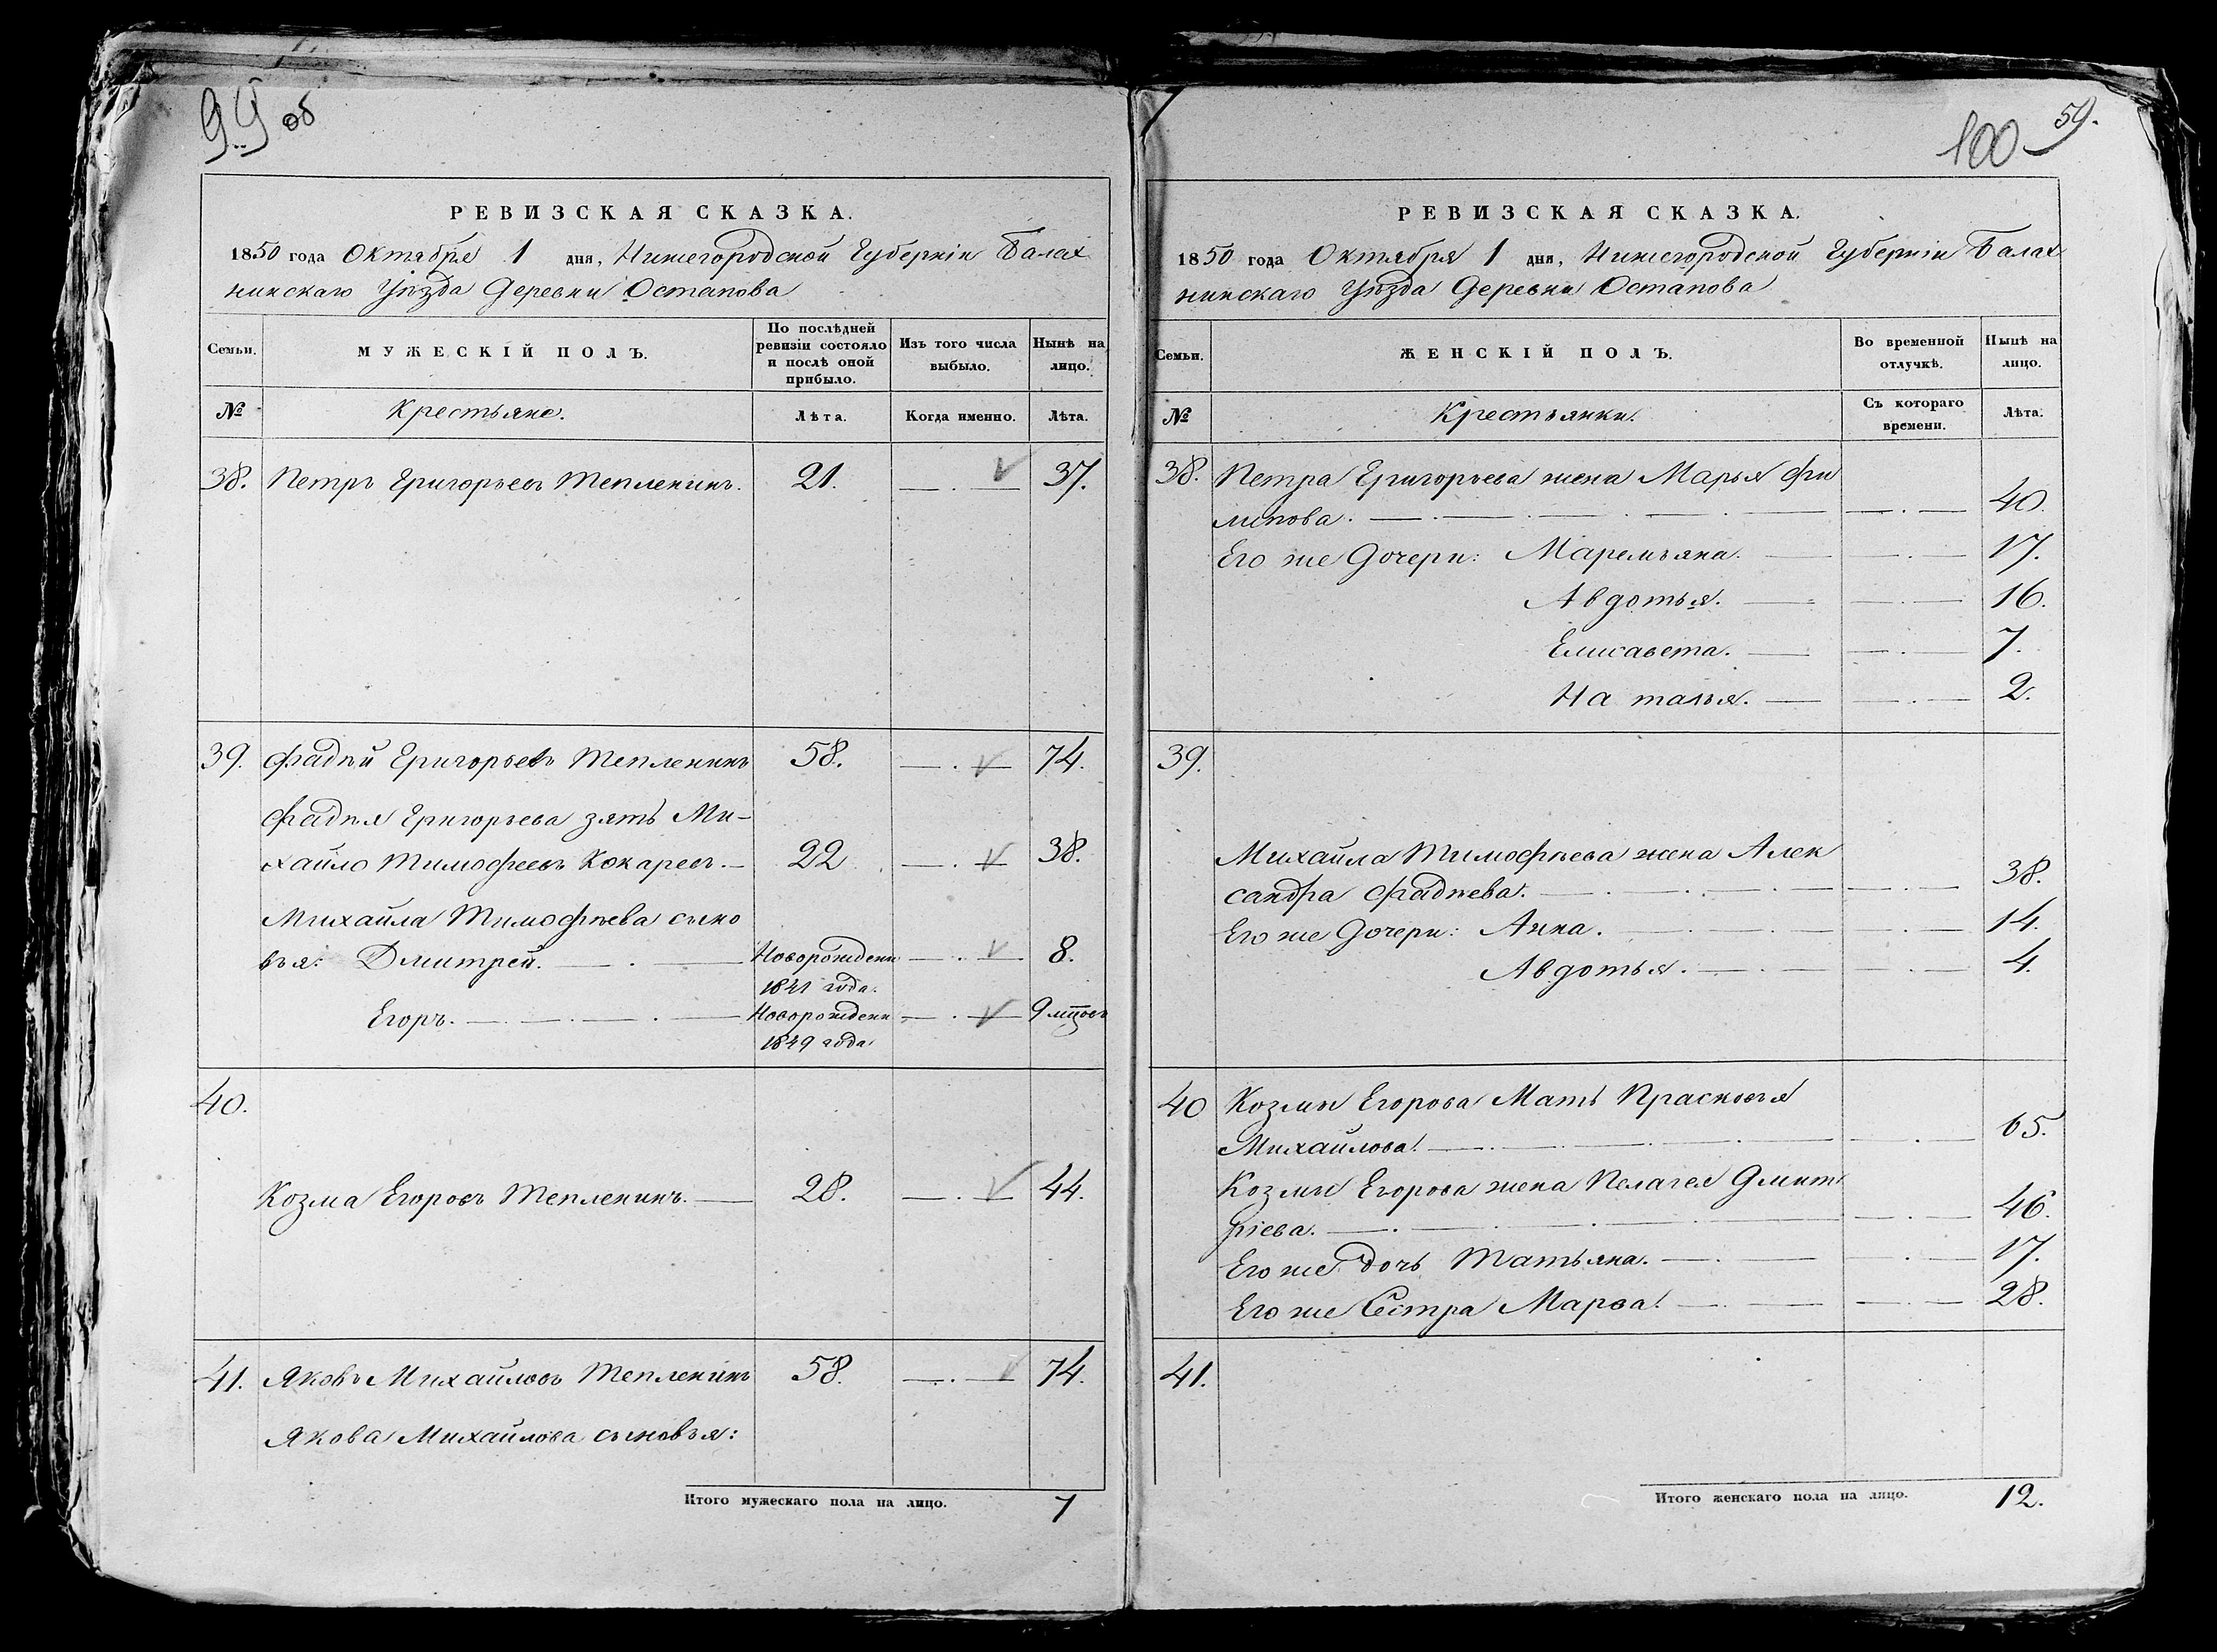 99 об
РЕВИЗСКАЯ СКАЗКА.
1850 года Октября 1 дня, Нижегородской Губернiи Балах
нинскаго Уѣзда Деревни Остапова
Семьи.
МУЖЕСКIЙ ПОЛЪ.
По послѣдней
ревизiи состояло
и послѣ оной
прибыло.
Изъ того числа
выбыло.
Нынѣ на
лицо.
№
Крестьяне.
Лѣта.
Когда именно.
Лѣта.
38. Петръ Григорьевъ Тепленинъ. 21. 37.
39. Фадѣй Григорьевъ Тепленинъ 58. 74.
Фадѣя Григорьева зять Ми-
хайло Тимофеевъ Кокаревъ. 22 38.
Михайла Тимофѣева сыно
вья: Дмитрей. Новорожденн 8.
1841 года.
Егоръ. Новорожденн 9 мцовъ
1849 года
40.
Козма Егоровъ Тепленинъ. 28. 44.
41. Яковъ Михайловъ Тепленинъ 58. 74.
Якова Михайлова сыновья:
Итого мужескаго пола на лицо. 7
100 59.
РЕВИЗСКАЯ СКАЗКА.
1850 года Октября 1 дня, Нижегородской Губернiи Балах
нинскаго Уѣзда Деревни Остапова
Семьи.
ЖЕНСКIЙ ПОЛЪ.
Во временной
отлучкѣ.
Нынѣ на
лицо.
№
Крестьянки.
Съ котораго
времени.
Лѣта.
38. Петра Григорьева жена Марья Фи
липова. 40.
Его же Дочери: Маремьяна. 17.
Авдотья. 16.
Елисавета. 7.
Наталья. 2.
39.
Михайла Тимофѣева жена Алек
сандра Фадѣева. 38.
Его же Дочери: Анна. 14.
Авдотья. 4.
40 Козмы Егорова Мать Прасковья
Михайлова. 65.
Козмы Егорова жена Пелагея Дмит
рiева. 46.
Его же дочь Татьяна. 17.
Его же Сестра Марва. 28.
41.
Итого женскаго пола на лицо. 12.